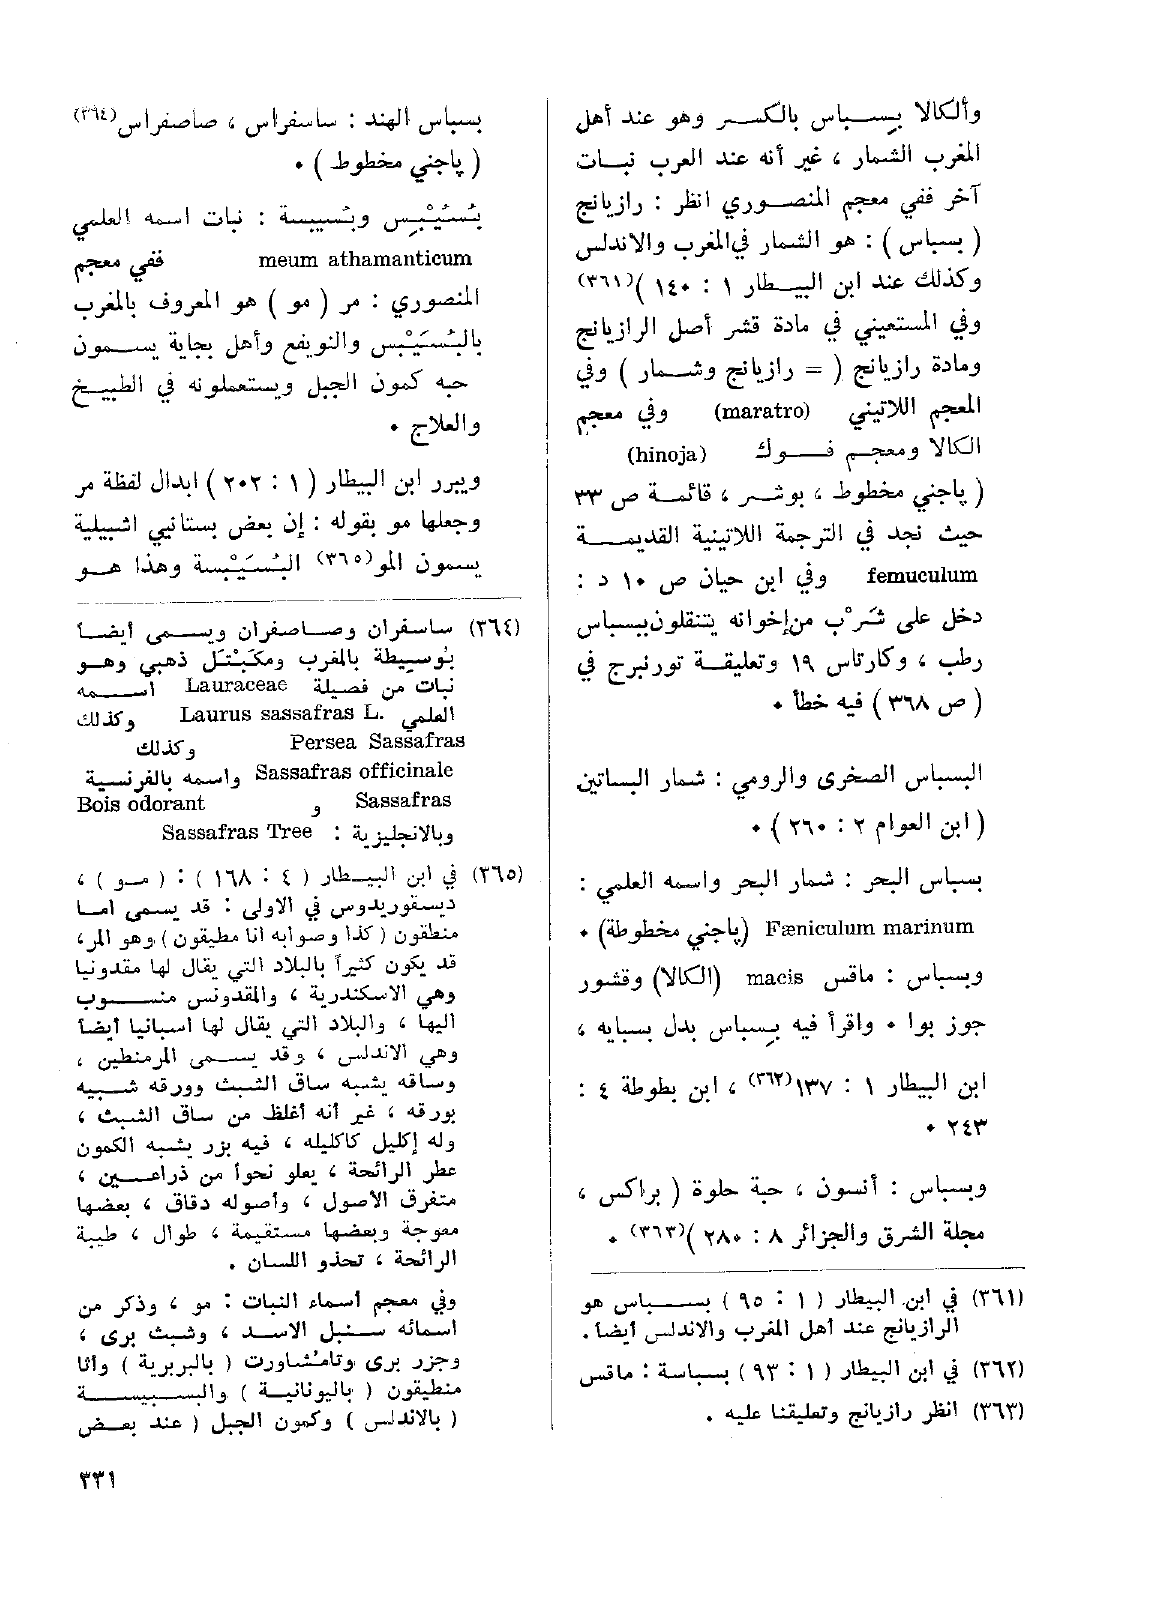 وألكالا بِسـباس بالكسـر وهو عند أهل
المغرب الشمار ، غير أنه عند العرب نبات
آخر ففي معجم المنصوري انظر : رازيانج
( بسباس ) : هو الشمار في المغرب والاندلس
وكذلك عند ابن البيطار ١ : ١٤٠ )(٣٦١)
وفي المستعيني في مادة قشر أصل الرازيانج
ومادة رازيانج ( = رازيانج وشمار ) وفي
المعجم اللاتيني (maratro) وفي معجم
الكالا ومعجم فوك (hinoja)
( پاجني مخطوط ، بوشر ، قائمة ص ٣٣
حيث نجد في الترجمة اللاتينية القديمة
femuculum وفي ابن حيان ص ١٠ د :
دخل على شَرْب من إخوانه يتنقلون ببسباس
رطب ، وكارتاس ١٩ وتعليقة تورنبرج في
( ص ٣٦٨ ) فيه خطأ .
البسباس الصخرى والرومي : شمار البساتين
( ابن العوام ٢ : ٢٦٠ ) .
بسباس البحر : شمار البحر واسمه العلمي :
Fæniculum marinum (پاجني مخطوطة) .
وبسباس : ماقس macis (الكالا) وقشور
جوز بوا . واقرأ فيه بِسباس بدل بسبايه ،
ابن البيطار ١ : ١٣٧(٣٦٢) ، ابن بطوطة ٤ :
٢٤٣ .
وبسباس : أنسون ، حبة حلوة ( براكس ،
مجلة الشرق والجزائر ٨ : ٢٨٠ )(٣٦٣) .
(٣٦١) في ابن البيطار ( ١ : ٩٥ ) بسباس هو
الرازيانج عند أهل المغرب والاندلس أيضاً .
(٣٦٢) في ابن البيطار ( ١ : ٩٣ ) بسباسة : ماقس
(٣٦٣) انظر رازيانج وتعليقنا عليه .
بسباس الهند : ساسفراس ، صاصفراس(٣٦٤)
( پاجني مخطوط ) .
بُسَيْبِس وبُسَيبسة : نبات اسمه العلمي
meum athamanticum ففي معجم
المنصوري : مر ( مو ) هو المعروف بالمغرب
بالبُسَيْبَس والنويفع وأهل بجاية يسمون
حبه كمون الجبل ويستعملونه في الطبيخ
والعلاج .
ويبرر ابن البيطار ( ١ : ٢٠٢ ) ابدال لفظة مر
وجعلها مو بقوله : إن بعض بستانيي اشبيلية
يسمون المو(٣٦٥) البُسَيْبَسة وهذا هو
(٣٦٤) ساسفران وصاصفران ويسمى أيضاً
بُوسيطة بالمغرب ومكينتل ذهبي وهو
نبات من فصيلة Lauraceae اسمه
العلمي Laurus sassafras L. وكذلك
Persea Sassafras وكذلك
Sassafras officinale واسمه بالفرنسية
Sassafras و Bois odorant
وبالانجليزية : Sassafras Tree
(٣٦٥) في ابن البيطار ( ٤ : ١٦٨ ) : ( مو ) ،
ديسقوريدوس في الاولى : قد يسمى اما
منطقون ( كذا وصوابه انا مطيقون ) وهو المر ،
قد يكون كثيراً بالبلاد التي يقال لها مقدونيا
وهي الاسكندرية ، والمقدونس منسوب
اليها ، والبلاد التي يقال لها اسبانيا أيضاً
وهي الاندلس ، وقد يسمى المرمنطين ،
وساقه يشبه ساق الشبث وورقه شبيه
بورقه ، غير أنه أغلظ من ساق الشبث ،
وله إكليل كاكليله ، فيه بزر يشبه الكمون
عطر الرائحة ، يعلو نحواً من ذراعين ،
متفرق الأصول ، وأصوله دقاق ، بعضها
معوجة وبعضها مستقيمة ، طوال ، طيبة
الرائحة ، تحذو اللسان .
وفي معجم أسماء النبات : مو ، وذكر من
اسمائه سنبل الاسد ، وشبث برى ،
وجزر برى وتامشاورت ( بالبربرية ) وانا
منطيقون ( باليونانية ) والبسيبسة
( بالاندلس ) وكمون الجبل ( عند بعض
٣٣١